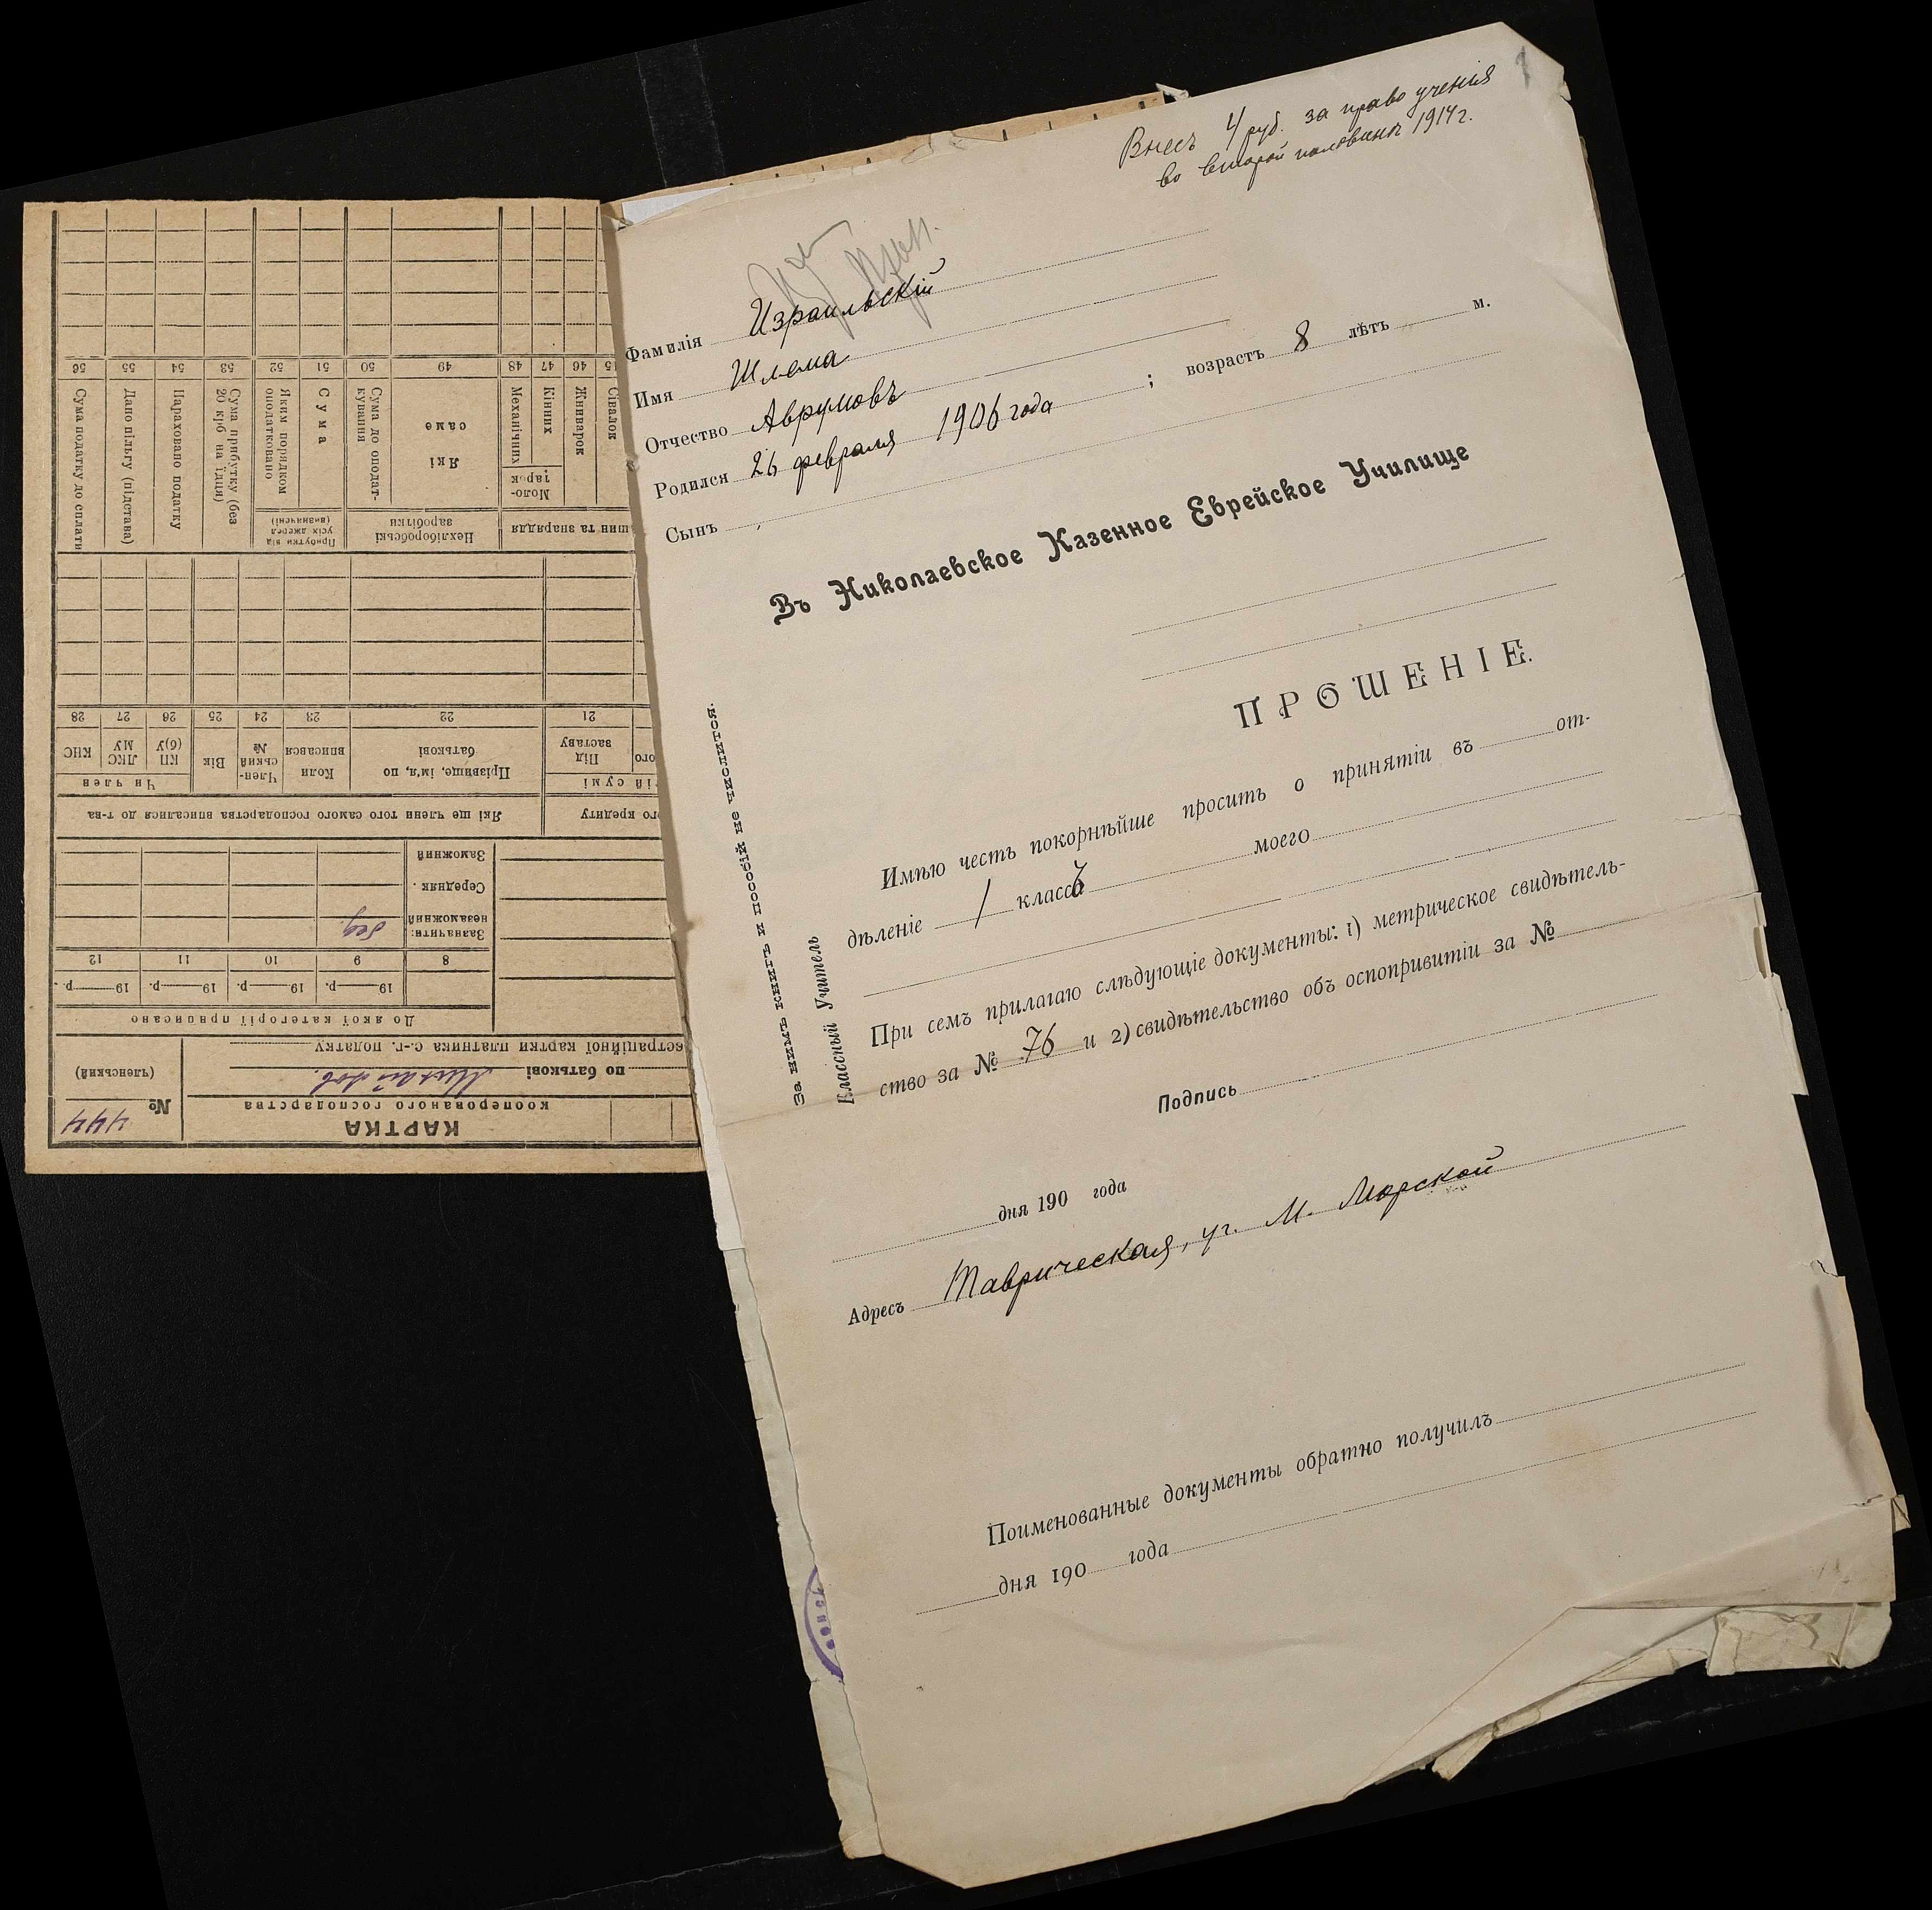 Внесъ 4 руб. за право ученія
во второй половинѣ 1914 г.
Фамилія Израильскій
Имя Шлема
Отчество Аврумовъ
Родился 26 февраля 1906 года ; возрастъ 8 лѣтъ м.
Сынъ
Въ Николаевское Казенное Еврейское Училище
ПРОШЕНІЕ.
Имѣю честь покорнѣйше просить о принятіи въ от-
дѣленіе 1 класса моего
При семъ прилагаю слѣдующіе документы: 1) метрическое свидѣтель-
ство за № 76 и 2) свидѣтельство объ оспопривитіи за №
Подпись
дня 190 года
Адресъ Таврическая, уг. М. Морской
Поименованные документы обратно получилъ
дня 190 года
За нимъ книгъ и пособій не числится.
Классный Учитель
КАРТКА
кооперованого господарства
№ 444
(членський)
по батькові
естраційної картки платника с.-г. податку
До якої категорії приписано
19 р. 19 р. 19 р. 19 р.
8 9 10 11 12
Зазначити:
незаможний бед.
Середняк
Заможний
ого кредиту
Які ще члени того самого господарства вписалися до т-ва
ій сумі
Чи член
ого
Під заставу
Прізвище, ім'я, по батькові
Коли вписався
Член-ський №
Вік
КП (б)У
ЛКС МУ
КНС
21 22 23 24 25 26 27 28
шин та знаряддя
Нехліборобські заробітки
Прибутки від усіх джерел (визначені)
Сівалок
Жниварок
Моло-тарок
Кінних
Механічних
Які саме
Сума до оподат-кування
Сума
Яким порядком оподатковано
Сума прибутку (без 20 крб на їдця)
Нараховано податку
Дано пільгу (підстава)
Сума податку до сплати
45 46 47 48 49 50 51 52 53 54 55 56